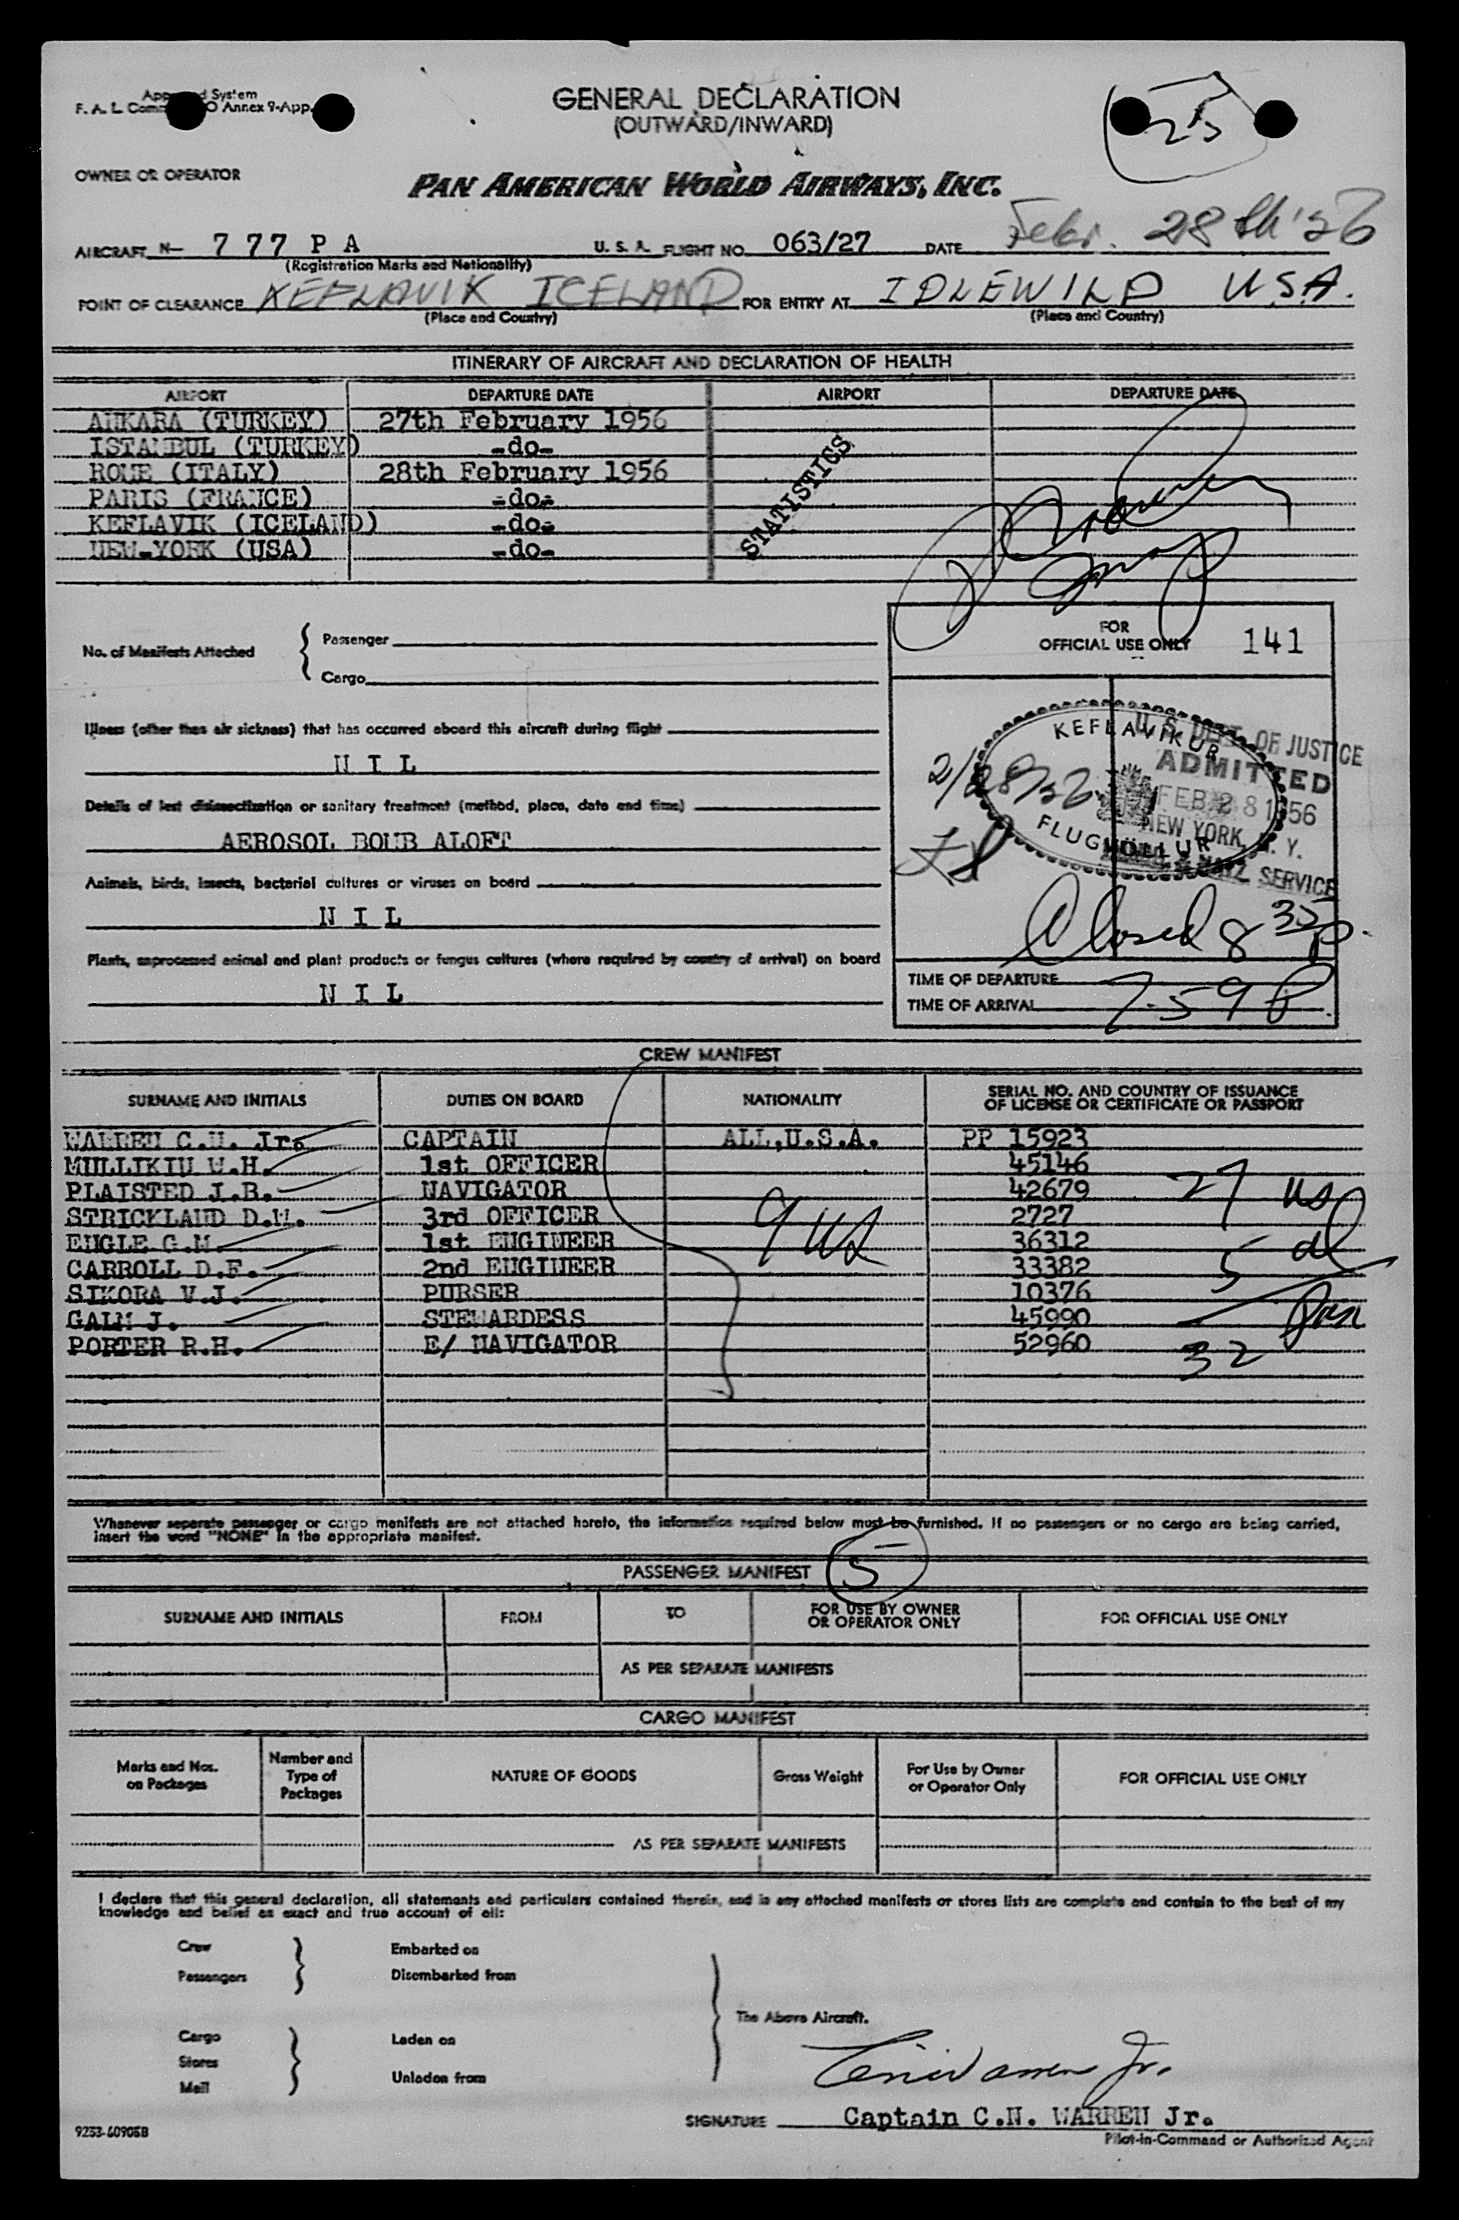 GENERAL DECLARATION
(OUTWARD/INWARD)
25
F. A. L. Annex 9-App.
OWNER OR OPERATOR
PAN AMERICAN WORLD AIRWAYS, INC.
AIRCRAFT N- 777 P A U. S. A. FLIGHT NO. 063/27 DATE Febr. 28th '56
(Registration Marks and Nationality)
POINT OF CLEARANCE KEFLAVIK ICELAND FOR ENTRY AT IDLEWILD U.S.A.
(Place and Country) (Place and Country)
ITINERARY OF AIRCRAFT AND DECLARATION OF HEALTH
AIRPORT DEPARTURE DATE AIRPORT DEPARTURE DATE
ANKARA (TURKEY) 27th February 1956
ISTANBUL (TURKEY) -do-
ROME (ITALY) 28th February 1956
PARIS (FRANCE) -do-
KEFLAVIK (ICELAND) -do-
NEW-YORK (USA) -do-
STATISTICS
No. of Manifests Attached { Passenger
Cargo
FOR
OFFICIAL USE ONLY 141
Illness (other than air sickness) that has occurred aboard this aircraft during flight
N I L
Details of last disinsectization or sanitary treatment (method, place, date and time)
AEROSOL BOMB ALOFT
Animals, birds, insects, bacterial cultures or viruses on board
N I L
Plants, unprocessed animal and plant products or fungus cultures (where required by country of arrival) on board
N I L
KEFLAVIKUR
FLUGHÖLLUR
U. S. DEPT. OF JUSTICE
ADMITTED
FEB 28 1956
NEW YORK, N. Y.
IMMIG. & NATZ. SERVICE
2/28/56
Closed 8 35 P.
TIME OF DEPARTURE
TIME OF ARRIVAL 7-59 P
CREW MANIFEST
SURNAME AND INITIALS DUTIES ON BOARD NATIONALITY SERIAL NO. AND COUNTRY OF ISSUANCE
OF LICENSE OR CERTIFICATE OR PASSPORT
WARREN C.N. Jr. CAPTAIN ALL,U.S.A. PP 15923
MULLIKIN W.H. 1st OFFICER 45146
PLAISTED J.B. NAVIGATOR 42679 27 us
STRICKLAND D.W. 3rd OFFICER 2727
ENGLE G.M. 1st ENGINEER 9 us 36312
CARROLL D.F. 2nd ENGINEER 33382 5 al
SIKORA V.J. PURSER 10376
GALM J. STEWARDESS 45990
PORTER R.H. E/ NAVIGATOR 52960 32
Whenever separate passenger or cargo manifests are not attached hereto, the information required below must be furnished. If no passengers or no cargo are being carried,
insert the word "NONE" in the appropriate manifest.
PASSENGER MANIFEST 5
SURNAME AND INITIALS FROM TO FOR USE BY OWNER
OR OPERATOR ONLY FOR OFFICIAL USE ONLY
AS PER SEPARATE MANIFESTS
CARGO MANIFEST
Marks and Nos.
on Packages Number and
Type of
Packages NATURE OF GOODS Gross Weight For Use by Owner
or Operator Only FOR OFFICIAL USE ONLY
AS PER SEPARATE MANIFESTS
I declare that this general declaration, all statements and particulars contained therein, and in any attached manifests or stores lists are complete and contain to the best of my
knowledge and belief an exact and true account of all:
Crew Embarked on
Passengers Disembarked from
The Above Aircraft.
Cargo Laden on
Stores
Mail Unladen from
SIGNATURE Captain C.N. WARREN Jr.
Pilot-in-Command or Authorized Agent
9253-60905B